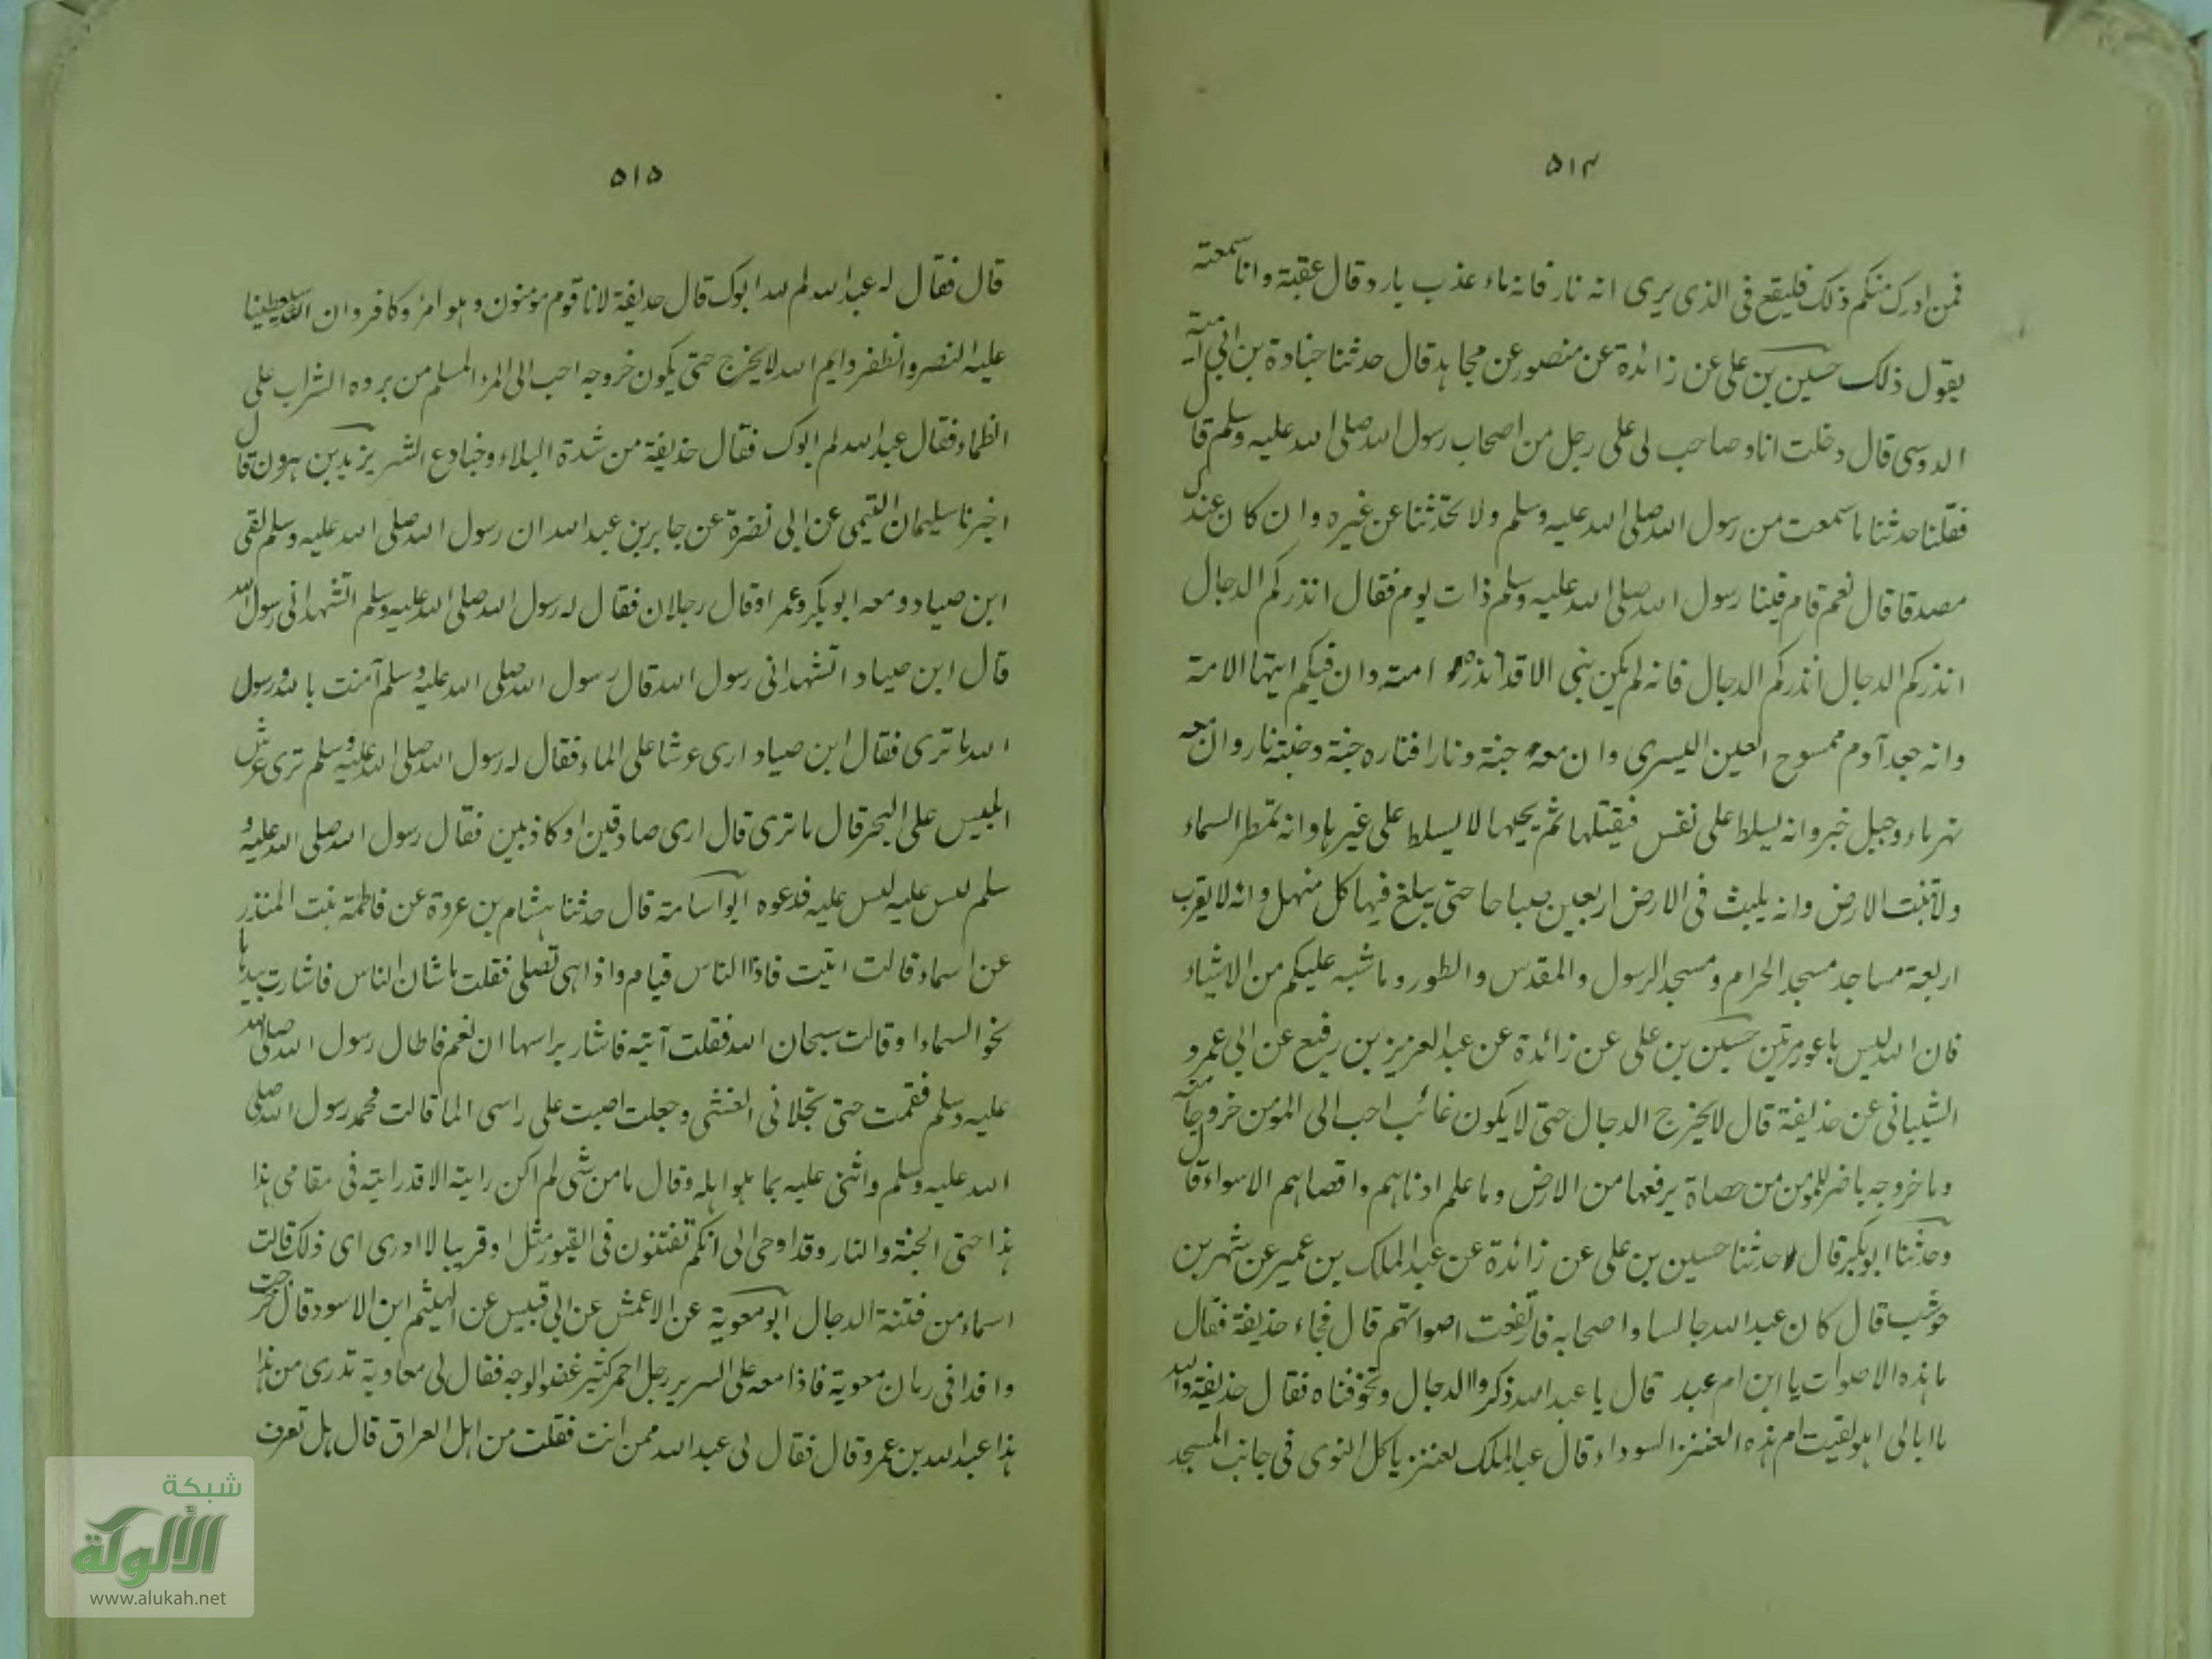 ٥١٤
فمن ادرك منكم ذلك فليقع فى الذى يرى انه نار فانه ماء عذب بارد قال عقبة وانا سمعته
يقول ذلك حسين بن على عن زائدة عن منصور عن مجاهد قال حدثنا جنادة بن ابى امية
الدوسى قال دخلت انا وصاحب لى على رجل من اصحاب رسول الله صلى الله عليه وسلم قال
فقلنا حدثنا ما سمعت من رسول الله صلى الله عليه وسلم ولا تحدثنا عن غيره وان كان عندك
مصدقا قال نعم قام فينا رسول الله صلى الله عليه وسلم ذات يوم فقال انذركم الدجال
انذركم الدجال انذركم الدجال فانه لم يكن نبى الا قد انذره امته وان فيكم ايتها الامة
وانه جعد آدم ممسوح العين اليسرى وان معه جنة ونارا فناره جنة وجنته نار وان معه
نهر ماء وجبل خبز وانه يسلط على نفس فيقتلها ثم يحيها لا يسلط على غيرها وانه تمطر السماء
ولا تنبت الارض وانه يلبث فى الارض اربعين صباحا حتى يبلغ فيها كل منهل وانه لا يقرب
اربعة مساجد مسجد الحرام ومسجد الرسول والمقدس والطور وما شبه عليكم من الاشياء
فان الله ليس باعور مرتين حسين بن على عن زائدة عن عبد العزيز بن رفيع عن ابى عمرو
الشيبانى عن حذيفة قال لا يخرج الدجال حتى لا يكون غائب احب الى المومن خروجا منه
وما خروجه باضر للمومن من حصاة يرفعها من الارض وما علم ادناهم واقصاهم الا سواء قال
وحدثنا ابو بكر قال حدثنا حسين بن على عن زائدة عن عبد الملك بن عمير عن شهر بن
حوشب قال كان عبد الله جالسا واصحابه فارتفعت اصواتهم قال فجاء حذيفة فقال
ما هذه الاصوات يا ابن ام عبد قال يا عبد الله ذكروا الدجال وتخوفناه فقال حذيفة والله
ما ابالى اهو لقيت ام هذه العنز السوداء قال عبد الملك لعنز ياكل النوى فى جانب المسجد
٥١٥
قال فقال له عبد الله لم لله ابوك قال حذيفة لانا قوم مومنون وهو امرؤ كافر وان الله سيعطينا
عليه النصر والظفر وايم الله لا يخرج حتى يكون خروجه احب الى المرء المسلم من برده الشراب على
الظماء فقال عبد الله لم ابوك فقال حذيفة من شدة البلاء وجنادع الشر يزيد بن هرون قال
اخبرنا سليمان التيمى عن ابى نضرة عن جابر بن عبد الله ان رسول الله صلى الله عليه وسلم لقى
ابن صياد ومعه ابو بكر وعمر او قال رجلان فقال له رسول الله صلى الله عليه وسلم اتشهد انى رسول الله
قال ابن صياد اتشهد انى رسول الله قال رسول الله صلى الله عليه وسلم آمنت بالله ورسول
الله ما ترى فقال ابن صياد ارى عرشا على الماء فقال له رسول الله صلى الله عليه وسلم ترى عرش
ابليس على البحر قال ما ترى قال ارى صادقين او كاذبين فقال رسول الله صلى الله عليه و
سلم لبس عليه لبس عليه فدعوه ابو اسامة قال حدثنا هشام بن عروة عن فاطمة بنت المنذر
عن اسماء قالت اتيت فاذا الناس قيام واذا هى تصلى فقلت ما شان الناس فاشارت بيدها
نحو السماء او قالت سبحان الله فقلت آية فاشار براسها ان نعم فاطال رسول الله صلى الله
عليه وسلم فقمت حتى تجلانى الغشى وجعلت اصبت على راسى الما قالت محمد رسول الله صلى
الله عليه وسلم واثنى عليه بما هو اهله وقال ما من شى لم اكن رايته الا قد رايته فى مقامى هذا
هذا حتى الجنة والنار وقد اوحى الى انكم تفتنون فى القبور مثل او قريبا لا ادرى اى ذلك قالت
اسماء من فتنة الدجال ابو معوية عن الاعمش عن ابى قبيس عن الهيثم ابن الاسود قال خرجت
وافدا فى زمان معوية فاذا معه على السرير رجل احمر كثير غضو الوجه فقال لى معاوية تدرى من هذا
هذا عبد الله بن عمرو قال فقال لى عبد الله ممن انت فقلت من اهل العراق قال هل تعرف
شبكة
الألوكة
www.alukah.net